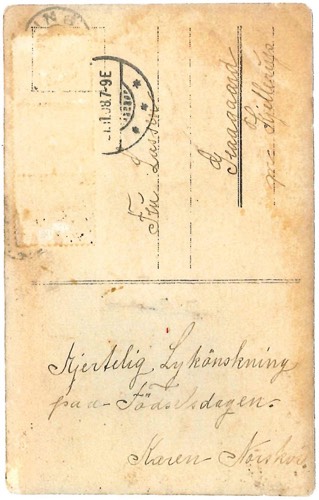 1.11.08.7-9E
Fru Lassen
Graagaard
pr Hjallerup
Hjertelig Lykönskning
paa Födselsdagen.
Karen Norskov